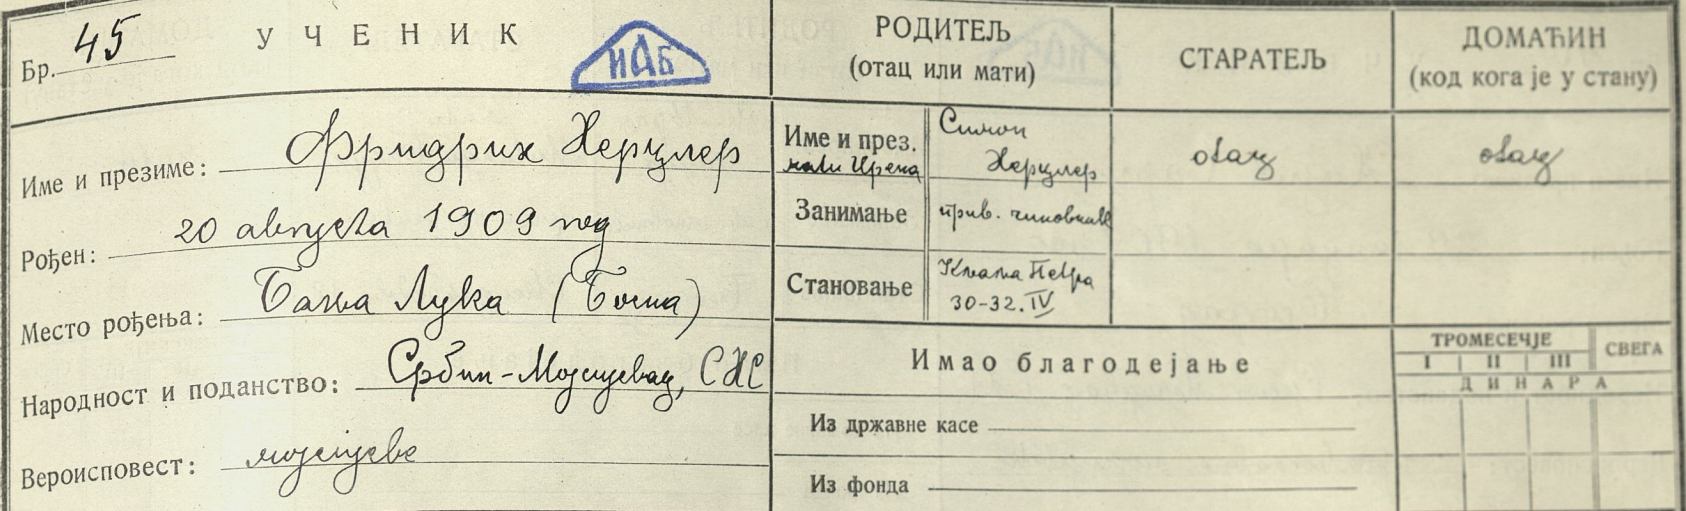 Бр. 45
УЧЕНИК
ИАБ
Име и презиме: Фридрих Херцлер
Рођен: 20 августа 1909 год
Место рођења: Бања Лука (Босна)
Народност и поданство: Србин-Мојсијевац, СХС
Вероисповест: мојсијеве
РОДИТЕЉ
(отац или мати)
СТАРАТЕЉ
ДОМАЋИН
(код кога је у стану)
Име и през.
мати Ирена
Симон
Херцлер
отац
отац
Занимање
прив. чиновник
Становање
Кнеза Петра
30-32. IV
Имао благодејање
ТРОМЕСЕЧЈЕ
СВЕГА
I II III
ДИНАРА
Из државне касе
Из фонда